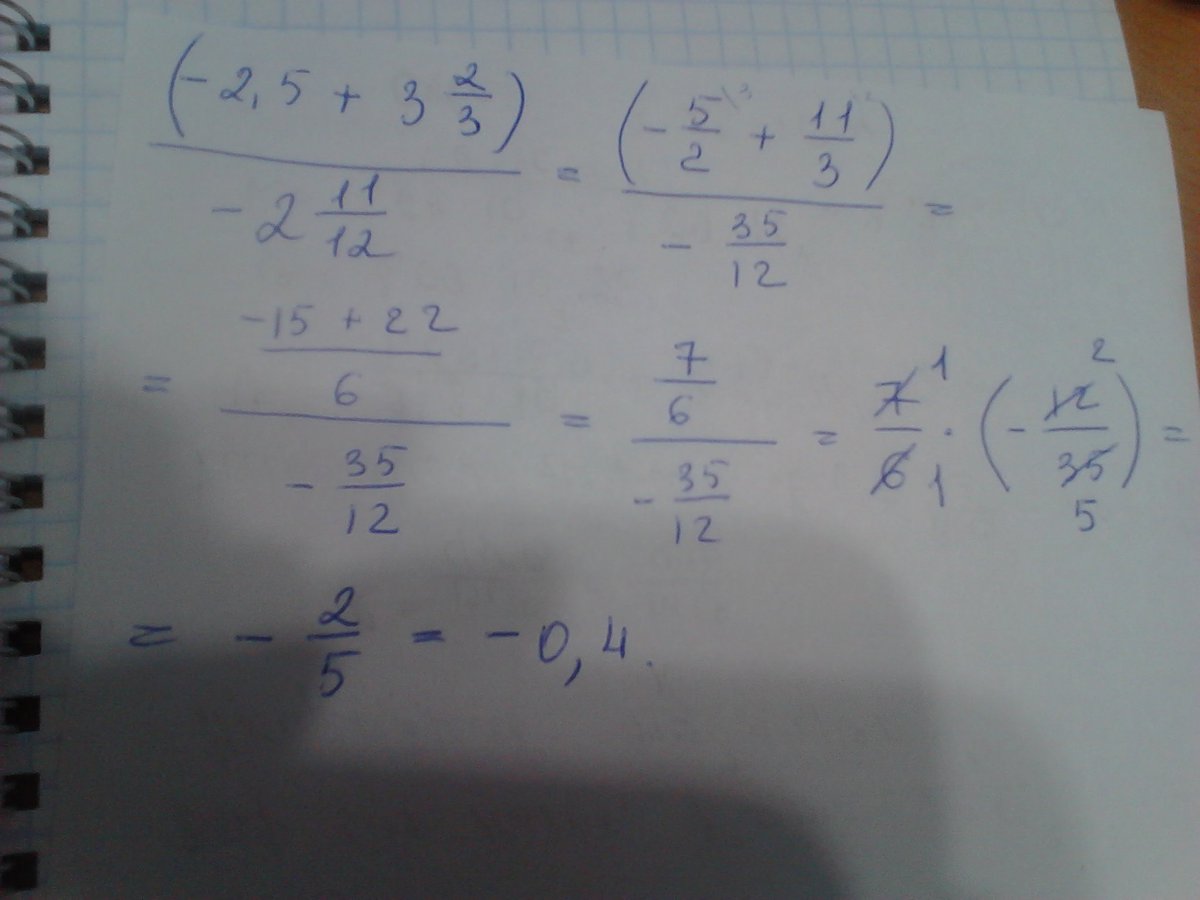 (-2,5 + 3 2/3) / (-2 11/12) = (-5/2 + 11/3) / (-35/12) =
= ((-15 + 22)/6) / (-35/12) = (7/6) / (-35/12) = 7/6 1 1 · (-12/35) 2 5 =
= -2/5 = -0,4.